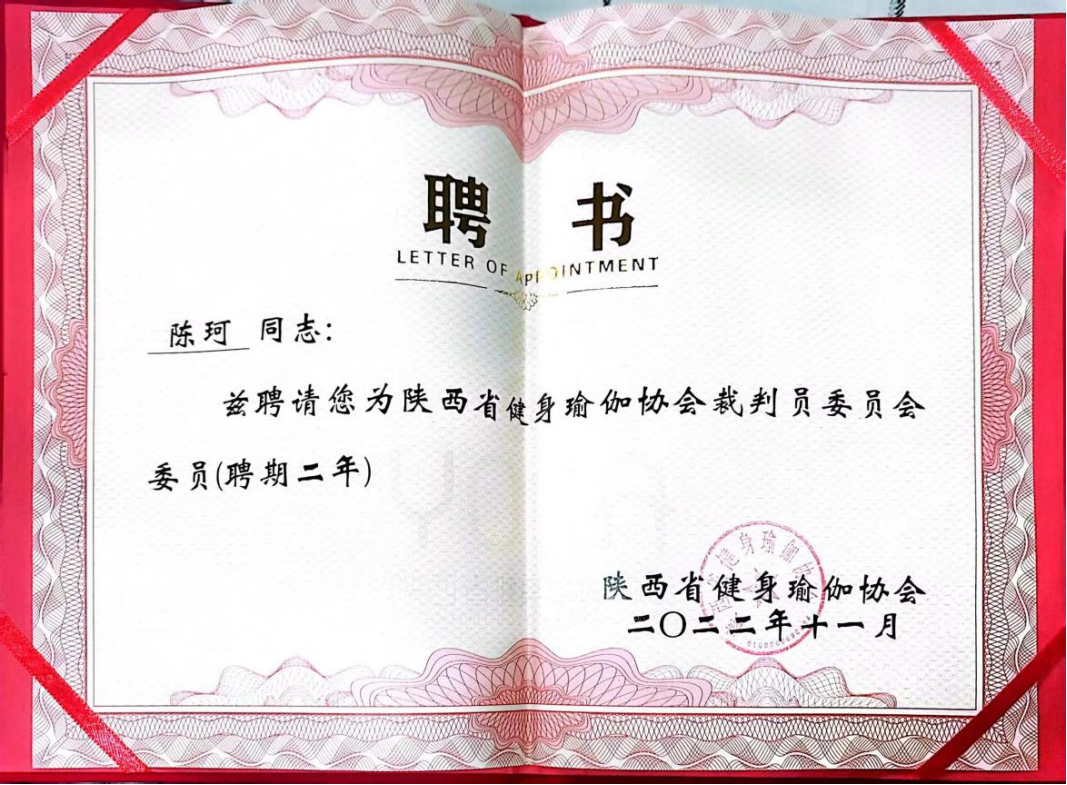 聘书
LETTER OF APPOINTMENT
陈珂 同志：
兹聘请您为陕西省健身瑜伽协会裁判员委员会
委员(聘期二年)
陕西省健身瑜伽协会
二〇二二年十一月